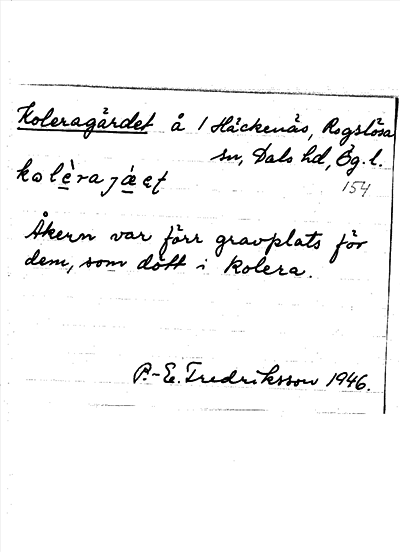 Koleragärdet å 1 Häckenäs, Rogslösa
sn, Dals hd, Ög. l.
154
kolèrajǽet
Åkern var förr gravplats för
dem, som dött i kolera.
P.-E. Fredriksson 1946.